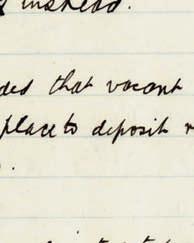 instead.
that vacant
place to deposit